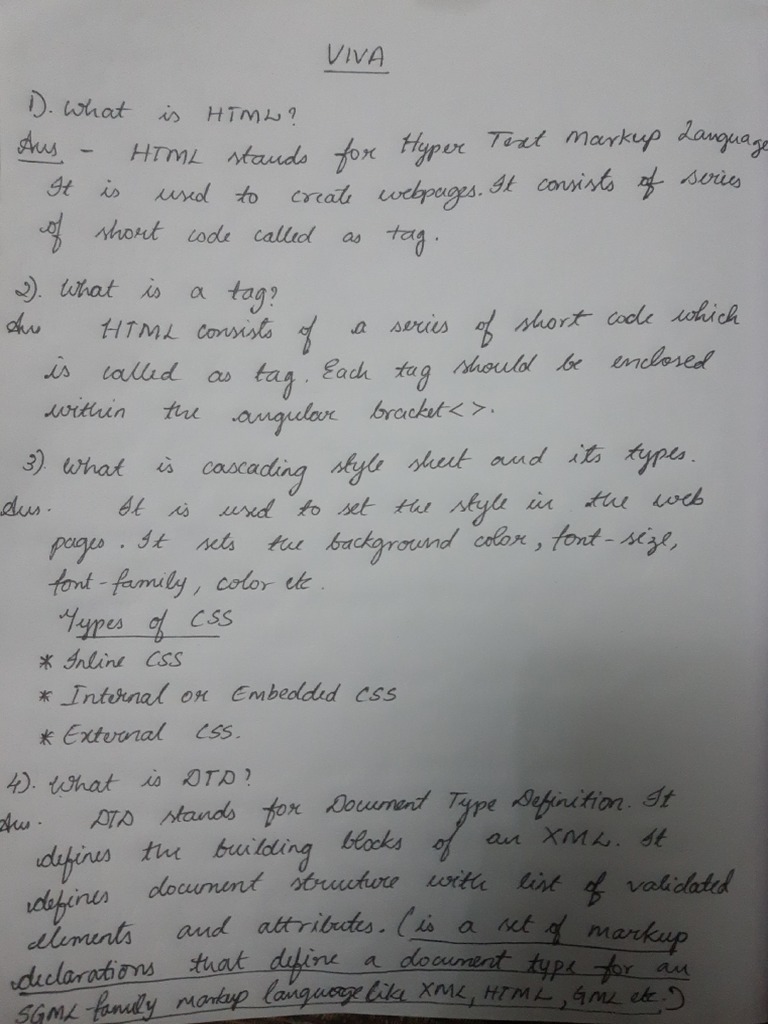 VIVA
1). What is HTML?
Ans - HTML stands for Hyper Text Markup Language
It is used to create webpages. It consists of series
of short code called as tag.
2). What is a tag?
Ans HTML consists of a series of short code which
is called as tag. Each tag should be enclosed
within the angular bracket < >.
3). What is cascading style sheet and its types.
Ans. It is used to set the style in the web
pages. It sets the background color, font-size,
font-family, color etc.
Types of CSS
* Inline CSS
* Internal or Embedded CSS
* External CSS.
4). What is DTD?
Ans. DTD stands for Document Type Definition. It
defines the building blocks of an XML. It
defines document structure with list of validated
elements and attributes. (is a set of markup
declarations that define a document type for an
SGML-family markup language like XML, HTML, GML etc.)